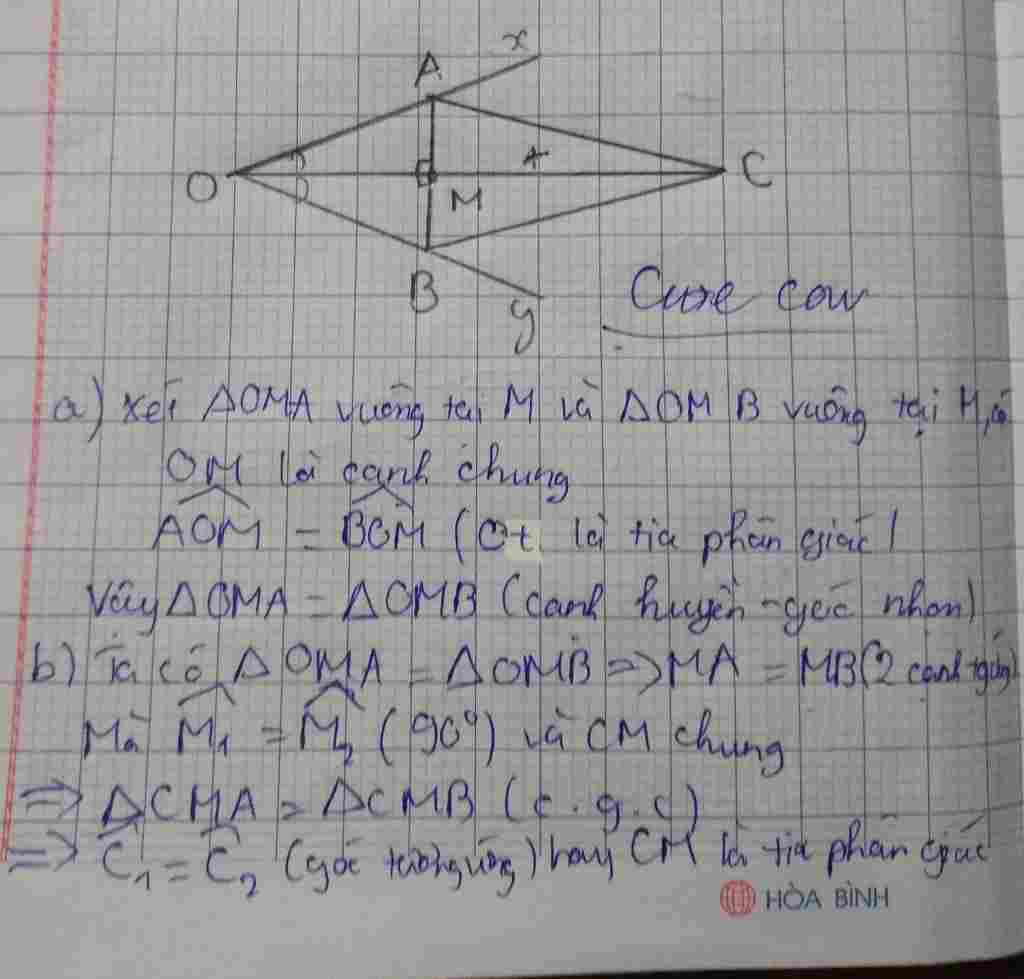 x
A
O
t
C
M
B
y
a) xét ΔOMA vuông tại M và ΔOMB vuông tại M, có
OM là cạnh chung
AOM = BOM (Ot là tia phân giác)
Vậy ΔOMA = ΔOMB (cạnh huyền - góc nhọn)
b) Ta có ΔOMA = ΔOMB => MA = MB (2 cạnh tg ứng)
Mà M1 = M2 (90°) và CM chung
=> ΔCMA = ΔCMB (c.g.c)
=> C1 = C2 (góc tương ứng) hay CM là tia phân giác
HÒA BÌNH